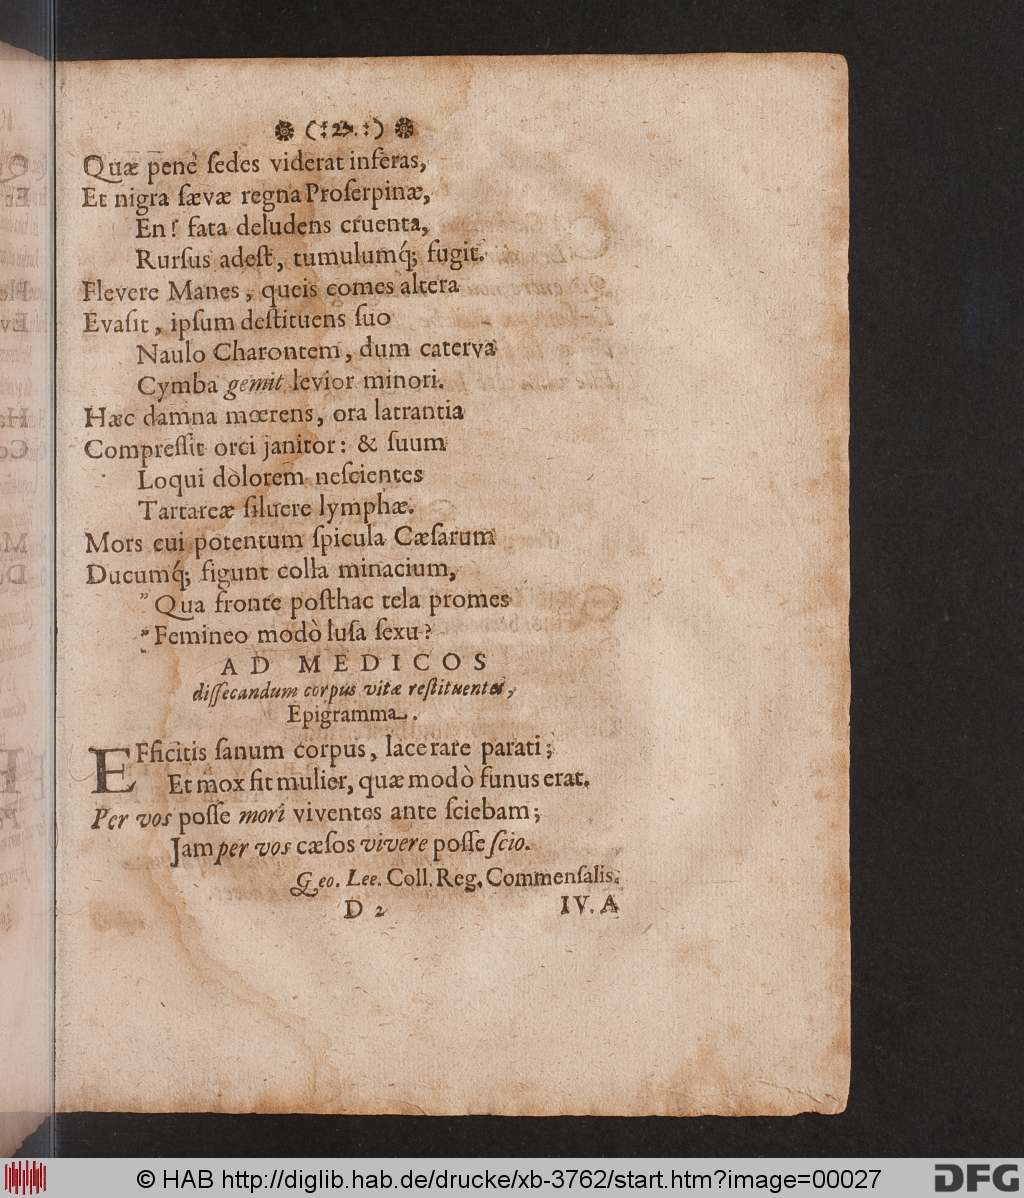 (: 23. :)
Quæ penè ſedes viderat inferas,
Et nigra ſævæ regna Proſerpinæ,
En! fata deludens cruenta,
Rurſus adeſt, tumulumq́; fugit.
Flevere Manes, queis comes altera
Evaſit, ipſum deſtituens ſuo
Naulo Charontem, dum caterva
Cymba gemit levior minori.
Hæc damna mœrens, ora latrantia
Compreſſit orci janitor: & ſuum
Loqui dòlorem neſcientes
Tartareæ ſiluere lymphæ.
Mors cui potentum ſpicula Cæſarum
Ducumq́; figunt colla minacium,
" Qua fronte poſthac tela promes
" Femineo modò luſa ſexu?
AD MEDICOS
diſſecandum corpus vitæ reſtituentes,
Epigramma.
EFficitis ſanum corpus, lacerare parati;
Et mox fit mulier, quæ modò funus erat.
Per vos poſſe mori viventes ante ſciebam;
Jam per vos cæſos vivere poſſe ſcio.
Geo. Lee. Coll. Reg. Commenſalis.
D 2 IV. A
© HAB http://diglib.hab.de/drucke/xb-3762/start.htm?image=00027 DFG